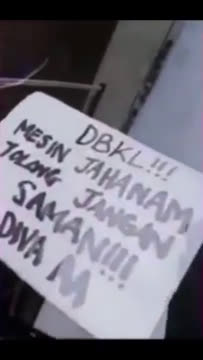 DBKL!!!
MESIN JAHANAM
TOLONG JANGAN
SAMAN!!!
DIVA M